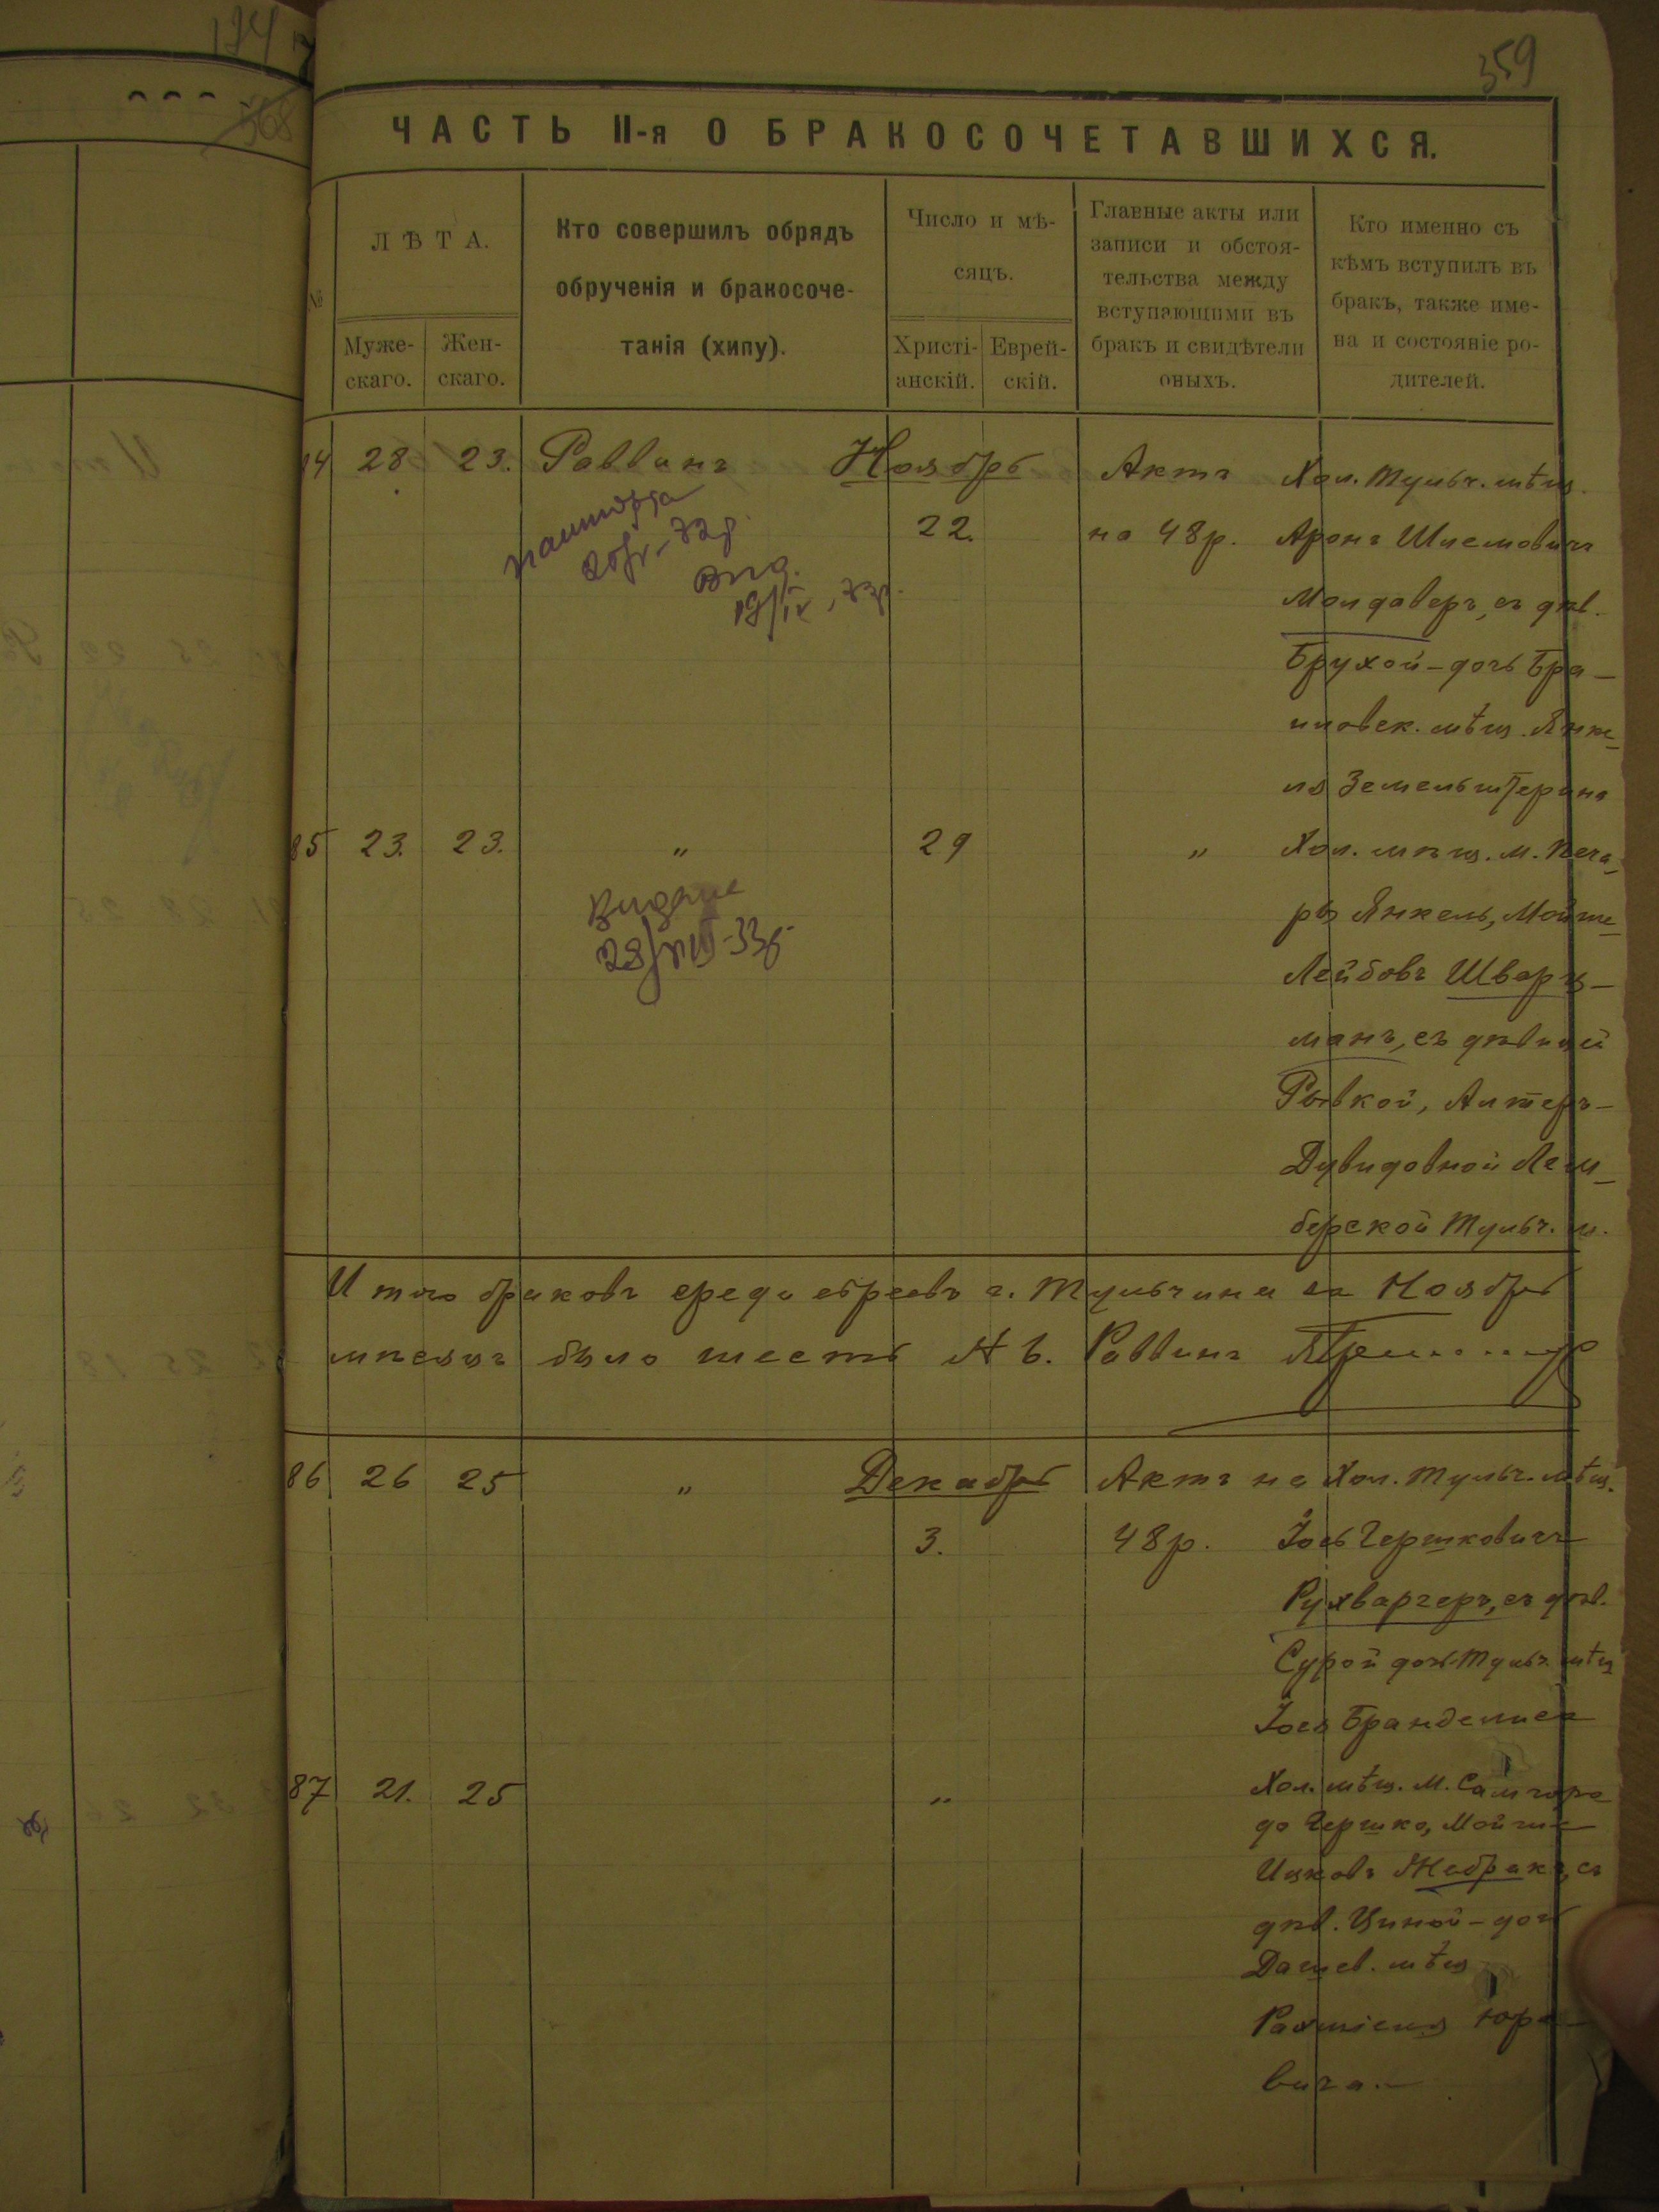 194
359
568
ЧАСТЬ II-я О БРАКОСОЧЕТАВШИХСЯ.
№
ЛѢТА.
Муже-
скаго.
Жен-
скаго.
Кто совершилъ обрядъ
обрученія и бракосоче-
танія (хипу).
Число и мѣ-
сяцъ.
Христі-
анскій.
Еврей-
скій.
Главные акты или
записи и обстоя-
тельства между
вступающими въ
бракъ и свидѣтели
оныхъ.
Кто именно съ
кѣмъ вступилъ въ
бракъ, также име-
на и состояніе ро-
дителей.
84 28 23. Раввинъ Ноябрь Актъ Хол. Тульч. мѣщ.
22. на 48р. Аронъ Шлемовичъ
Молдаверъ, съ дѣв.
Брухой-дочь Бра-
иловск. мѣщ. Янке-
ля Земельштерина
Вид.
19/IX, 33р.
85 23. 23. " 29 " Хол. мѣщ. м. Печа-
ры Янкель, Мойше-
Лейбовъ Шварц-
манъ, съ дѣвицей
Рывкой, Алтеръ-
Дувидовной Лем-
берской Тульч. м.
Видане
28/VIII-33р
Итого браковъ среди евреевъ г. Тульчина за Ноябрь
мѣсяцъ было шесть № 6. Раввинъ
86 26 25 " Декабрь Актъ на Хол. Тульч. мѣщ.
3. 48р. Іось Гершковичъ
Рухваргеръ, съ дѣв.
Сурой дочь Тульч. мѣщ
Іося Бранделиса
87 21. 25 " Хол. мѣщ. м. Самгоро
до Гершко, Мойше
Ицковъ Жебракъ, съ
дѣв. Циной-дочь
Дашев. мѣщ
Рахміеля Юра-
вича.-